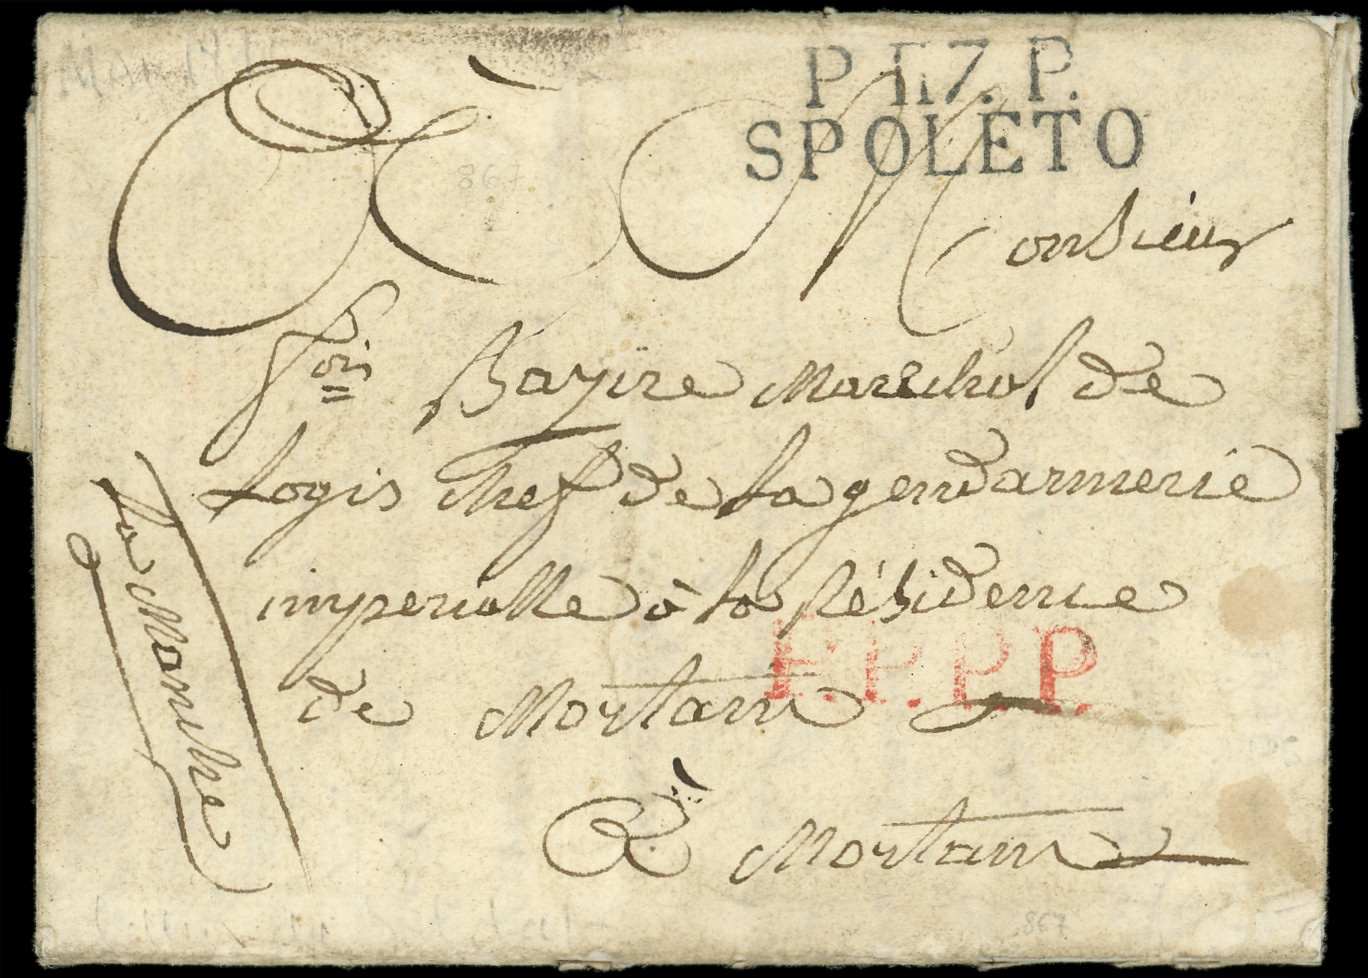 P 117. P.
SPOLETO
A Monsieur
fçois Bazire Marechal de
Logis chef de la gendarmerie
imperialle à la résidence
de Mortain
P.P.P.P.
à Mortain
la Manche
867
867